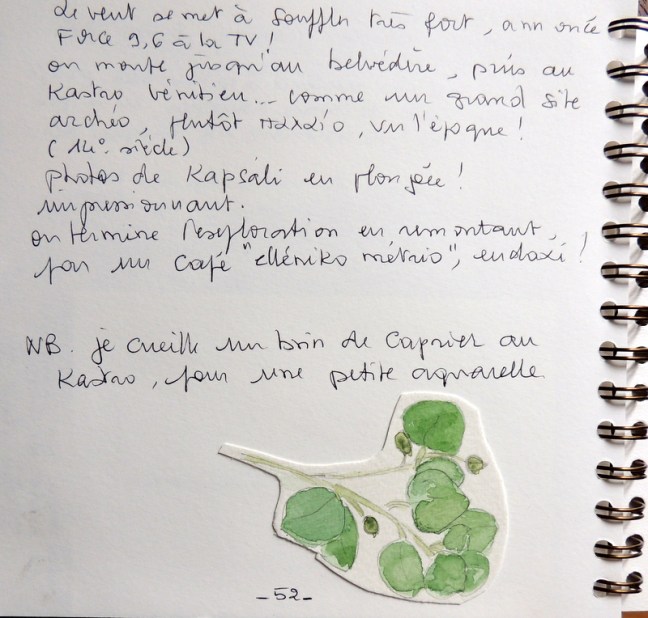 Le vent se met à souffler très fort, annoncée
Force 9,6 à la TV !
on monte jusqu'au belvédère, puis au
Kastro vénitien... comme un grand site
archéo, plutôt παλαίο, vu l'époque !
(14°. siècle)
photos de Kapsáli en plongée !
impressionnant.
on termine l'exploration en remontant,
par un café "elléniko métrio", endaxi !
NB. je cueille un brin de Caprier au
Kastro, pour une petite aquarelle
- 52 -